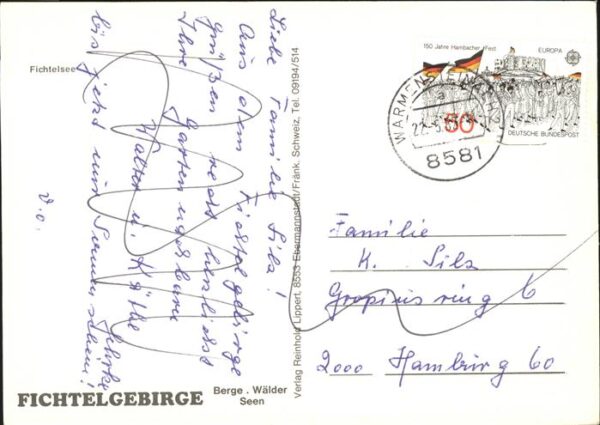 Fichtelsee
Liebe Familie Silz!
Aus dem Fichtelgebirge
grüßen recht herzlichst
Ihre Gartennachbarn
Walter u. Käthe
bis jetzt nur Sonnenschein!
V. O.
FICHTELGEBIRGE
Berge . Wälder
Seen
Verlag Reinhold Lippert, 8553 Ebermannstadt/Fränk. Schweiz, Tel. 09194/514
150 Jahre Hambacher Fest
EUROPA
50
DEUTSCHE BUNDESPOST
WARMENSTEINACH
8581
Familie
K. Silz
Gropiusring 6
2000 Hamburg 60